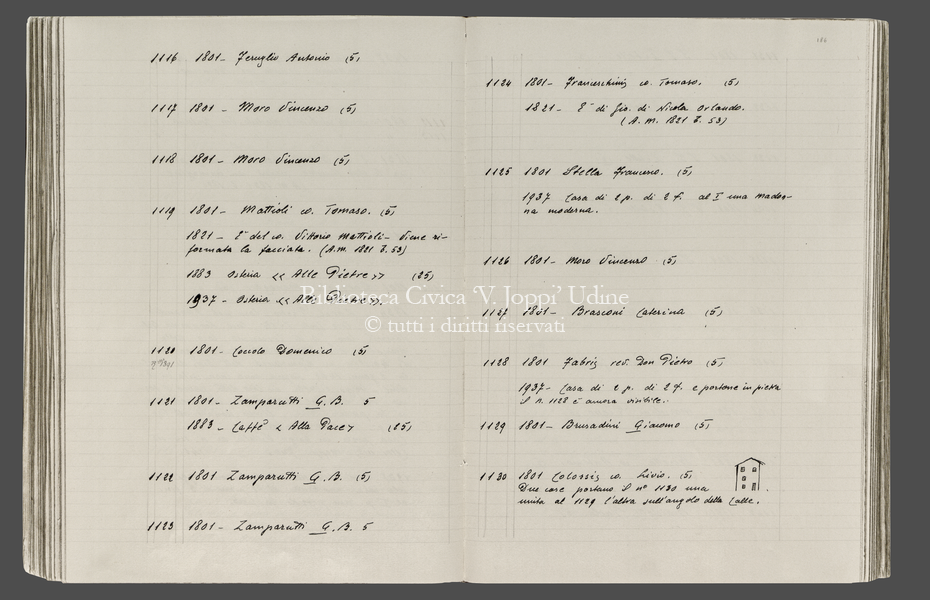 1116 1801 - Feruglio Antonio (5)
1117 1801 - Moro Vincenzo (5)
1118 1801 - Moro Vincenzo (5)
1119 1801 - Mattioli co. Tomaso. (5)
1821 - È del co. Vittorio Mattioli - Viene ri-
formata la facciata. (A.M. 1821 F. 53)
1883 Osteria << Alle Pietre >> (25)
1937 - Osteria << Alle Pietre >>.
1120 1801 - Coccolo Domenico (5)
1121 1801 - Zamparutti G. B. 5
1883 - Caffè < Alla Pace > (25)
1122 1801 Zamparutti G. B. (5)
1123 1801 - Zamparutti G. B. 5
186
1124 1801 - Franceschinis co. Tomaso. (5)
1821 - È di Gio. di Nicola Orlando.
(A.M. 1821 F. 53)
1125 1801 Stella Francesco. (5)
1937 Casa di 2 p. di 2 f. al I una mador-
na moderna.
1126 1801 - Moro Vincenzo (5)
1127 1801 - Brasconi Caterina (5)
1128 1801 Fabris rev. Don Pietro (5)
1937 - Casa di 2 p. di 2 f. e portone in pietra
Il n. 1128 è ancora visibile.
1129 1801 - Brusadini Giacomo (5)
1130 1801 Colossis co. Livio. (5)
Due case portano il n° 1130 una
unita al 1129 l'altra sull'angolo della Calle.
Biblioteca Civica 'V. Joppi' Udine
© tutti i diritti riservati